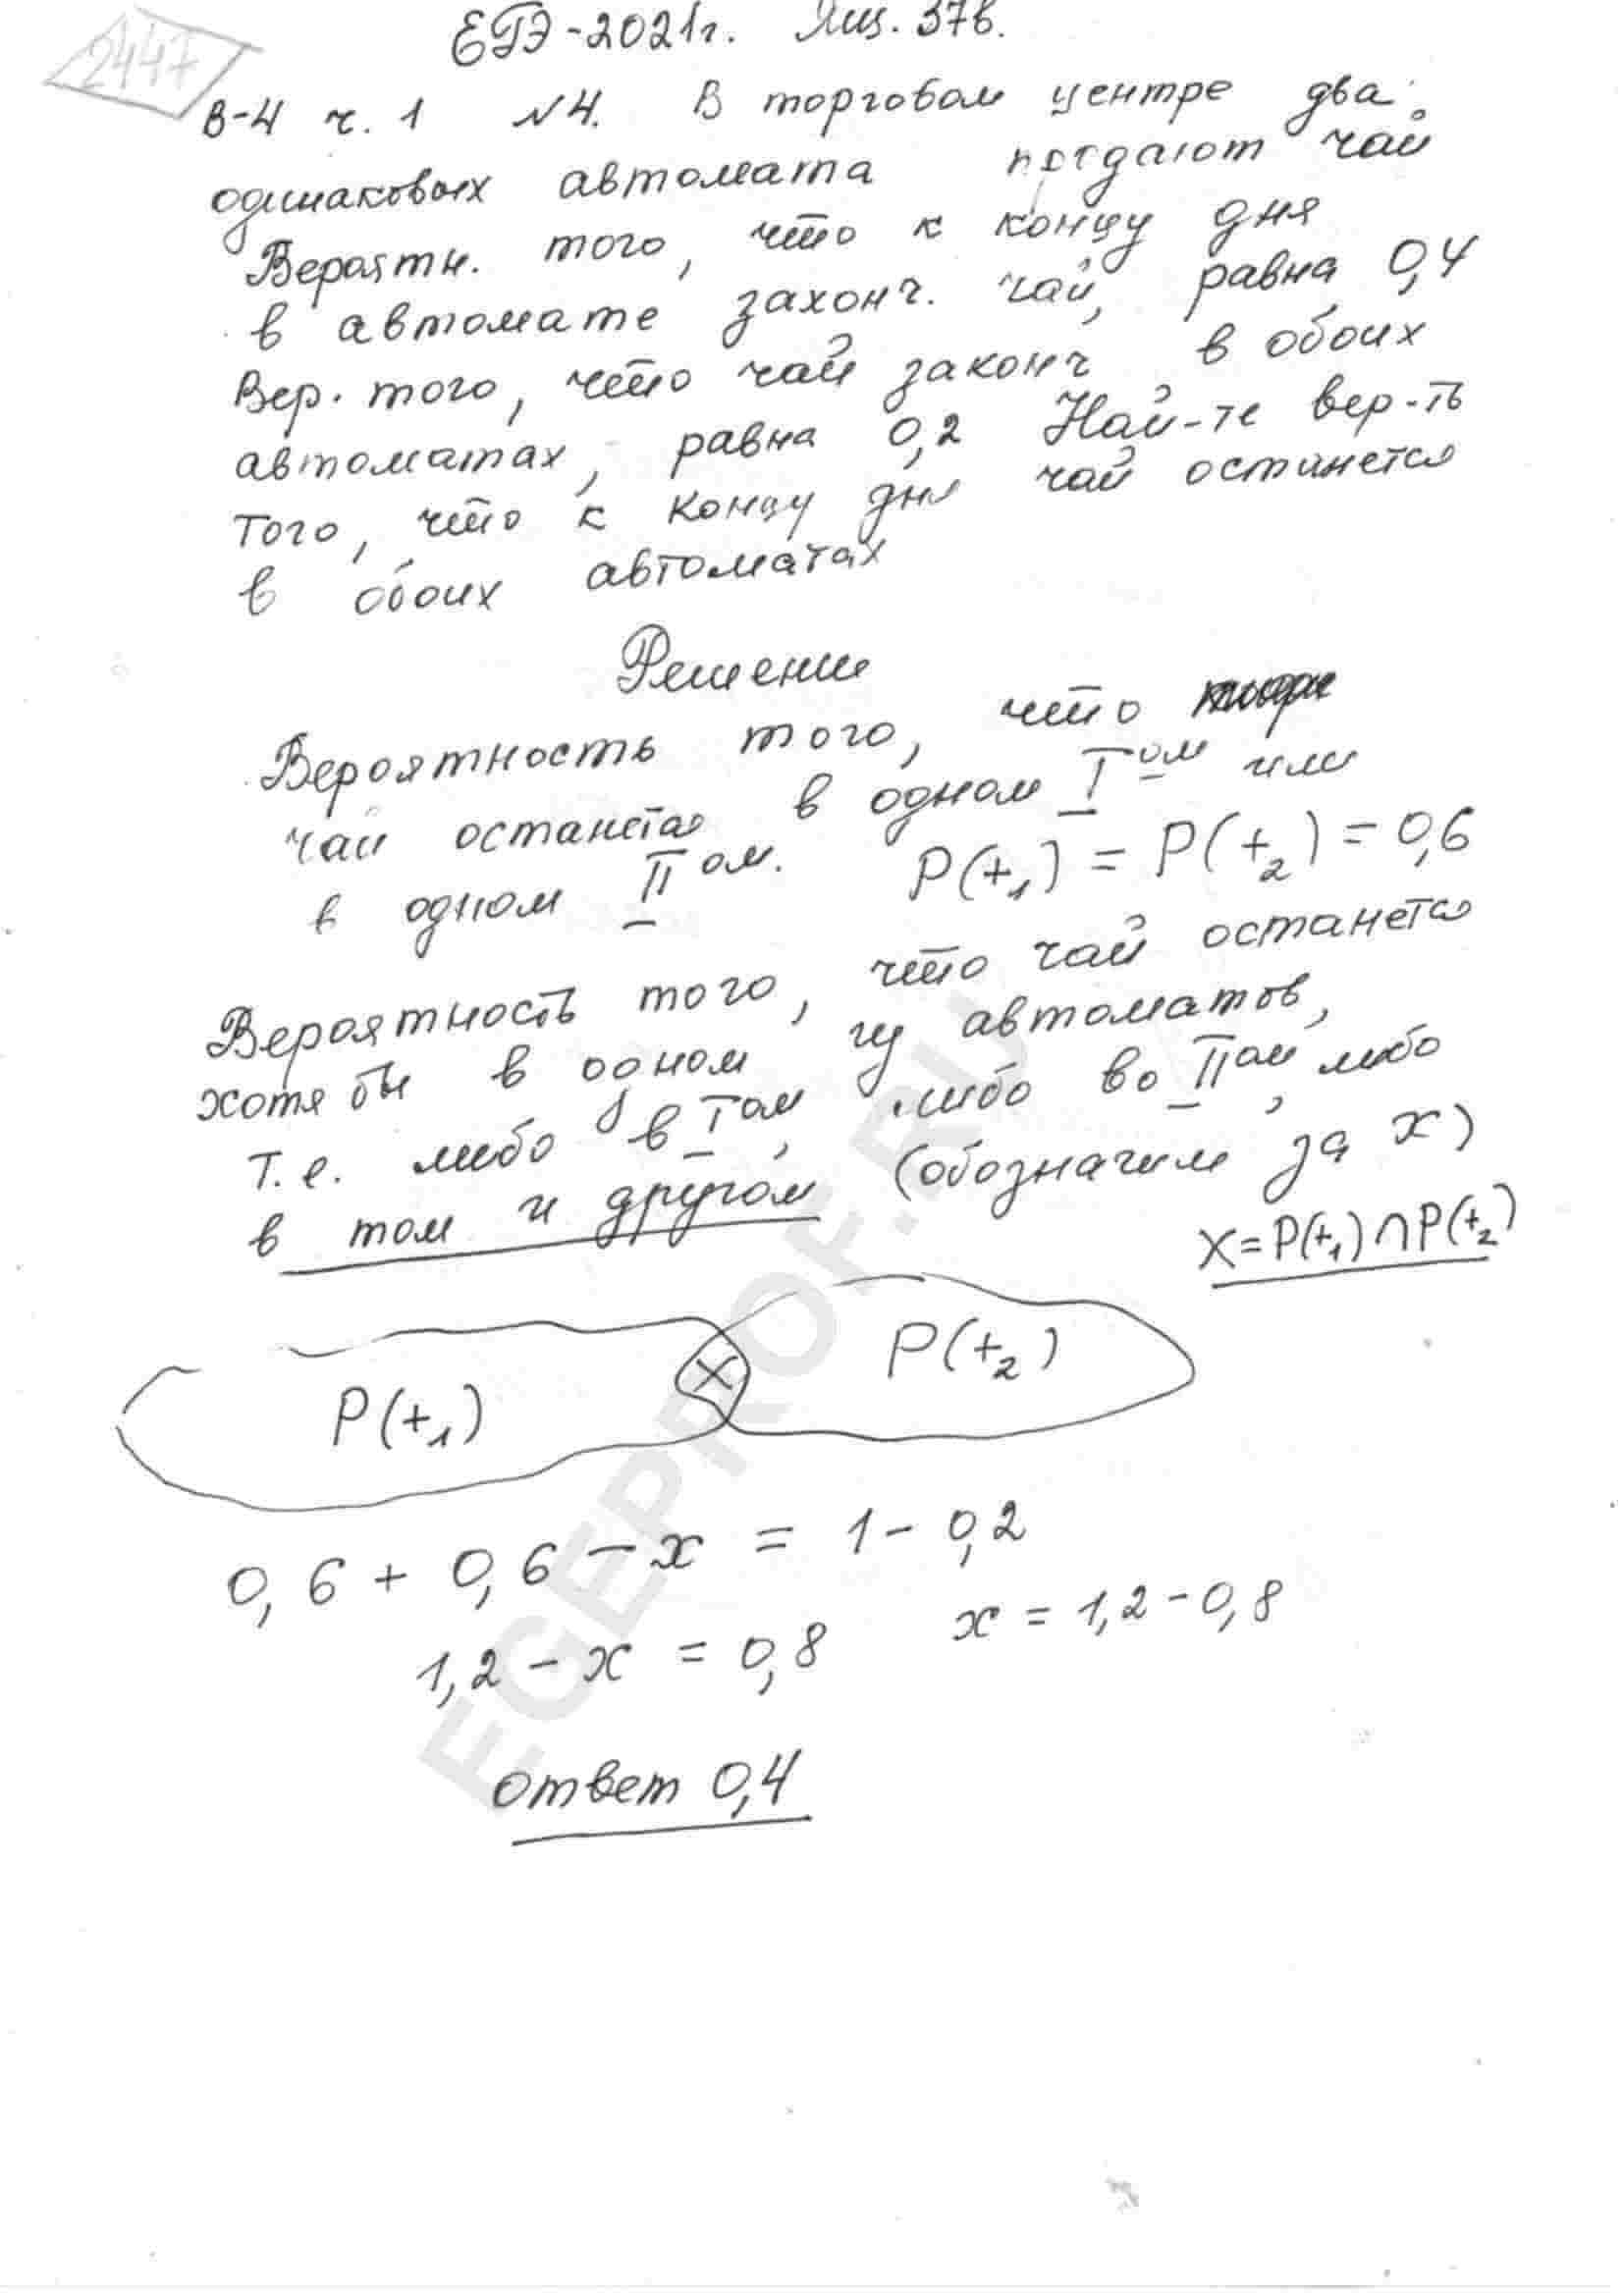 2447
ЕГЭ-2021г. Ящ. 37в.
В-4 ч. 1 №4. В торговом центре два
одинаковых автомата продают чай
Вероятн. того, что к концу дня
в автомате законч. чай, равна 0,4
Вер. того, что чай законч в обоих
автоматах, равна 0,2 Най-те вер-ть
того, что к концу дня чай останется
в обоих автоматах
Решение
Вероятность того, что
чай останется в одном I ом или
в одном II ом. P(+₁) = P(+₂) = 0,6
Вероятность того, что чай останется
хотя бы в одном из автоматов,
т.е. либо в I ом, либо во II ом, либо
в том и другом (обозначим за x)
X = P(+₁) ∩ P(+₂)
P(+₁) X P(+₂)
0,6 + 0,6 − x = 1 − 0,2
1,2 − x = 0,8 x = 1,2 − 0,8
ответ 0,4
EGEPROF.RU